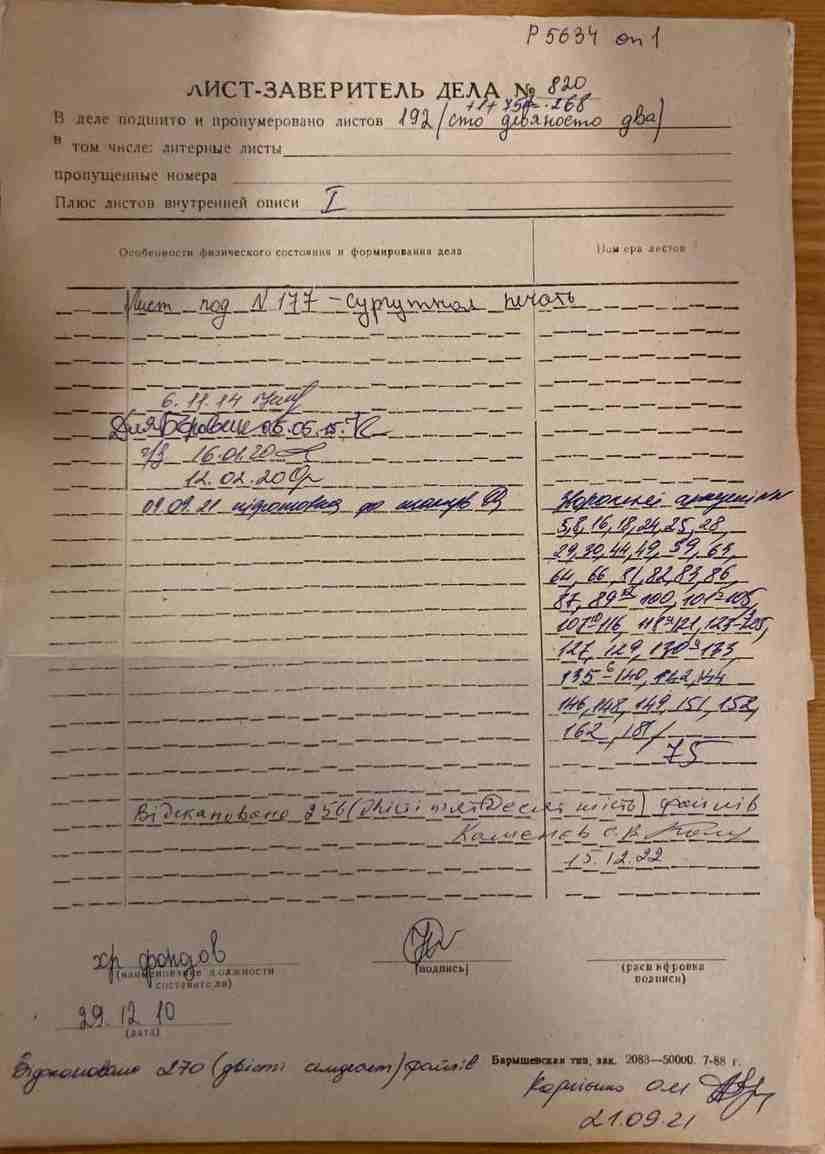 Р 5634 оп 1
ЛИСТ-ЗАВЕРИТЕЛЬ ДЕЛА № 820
+1+75= 268
В деле подшито и пронумеровано листов 192 (сто девяносто два)
в том числе: литерные листы
пропущенные номера
Плюс листов внутренней описи I
Особенности физического состояния и формирования дела
Номера листов
Лист под N 177 – сургучная печать
6.11.14
06.05.15
16.01.20
12.02.20
09.09.21 до
5,8,16,18,24,25,28,
29,30,44,49,59,63,
64,66,81,82,83,86,
87,89-100,101-105,
107-116,118-121,123-125,
127,129,130-133,
135-140,142,144
146,148,149,151,152,
162,181/
75
Відскановано 256 (двісті п'ятдесят шість) файлів
13.12.22
хр фондов
(наименование должности составителя)
(подпись)
(расшифровка подписи)
29.12.10
(дата)
Відскановано 270 (двісті сімдесят) файлів
Барышевская тип, зак. 2083—50000. 7-88 г.
21.09.21